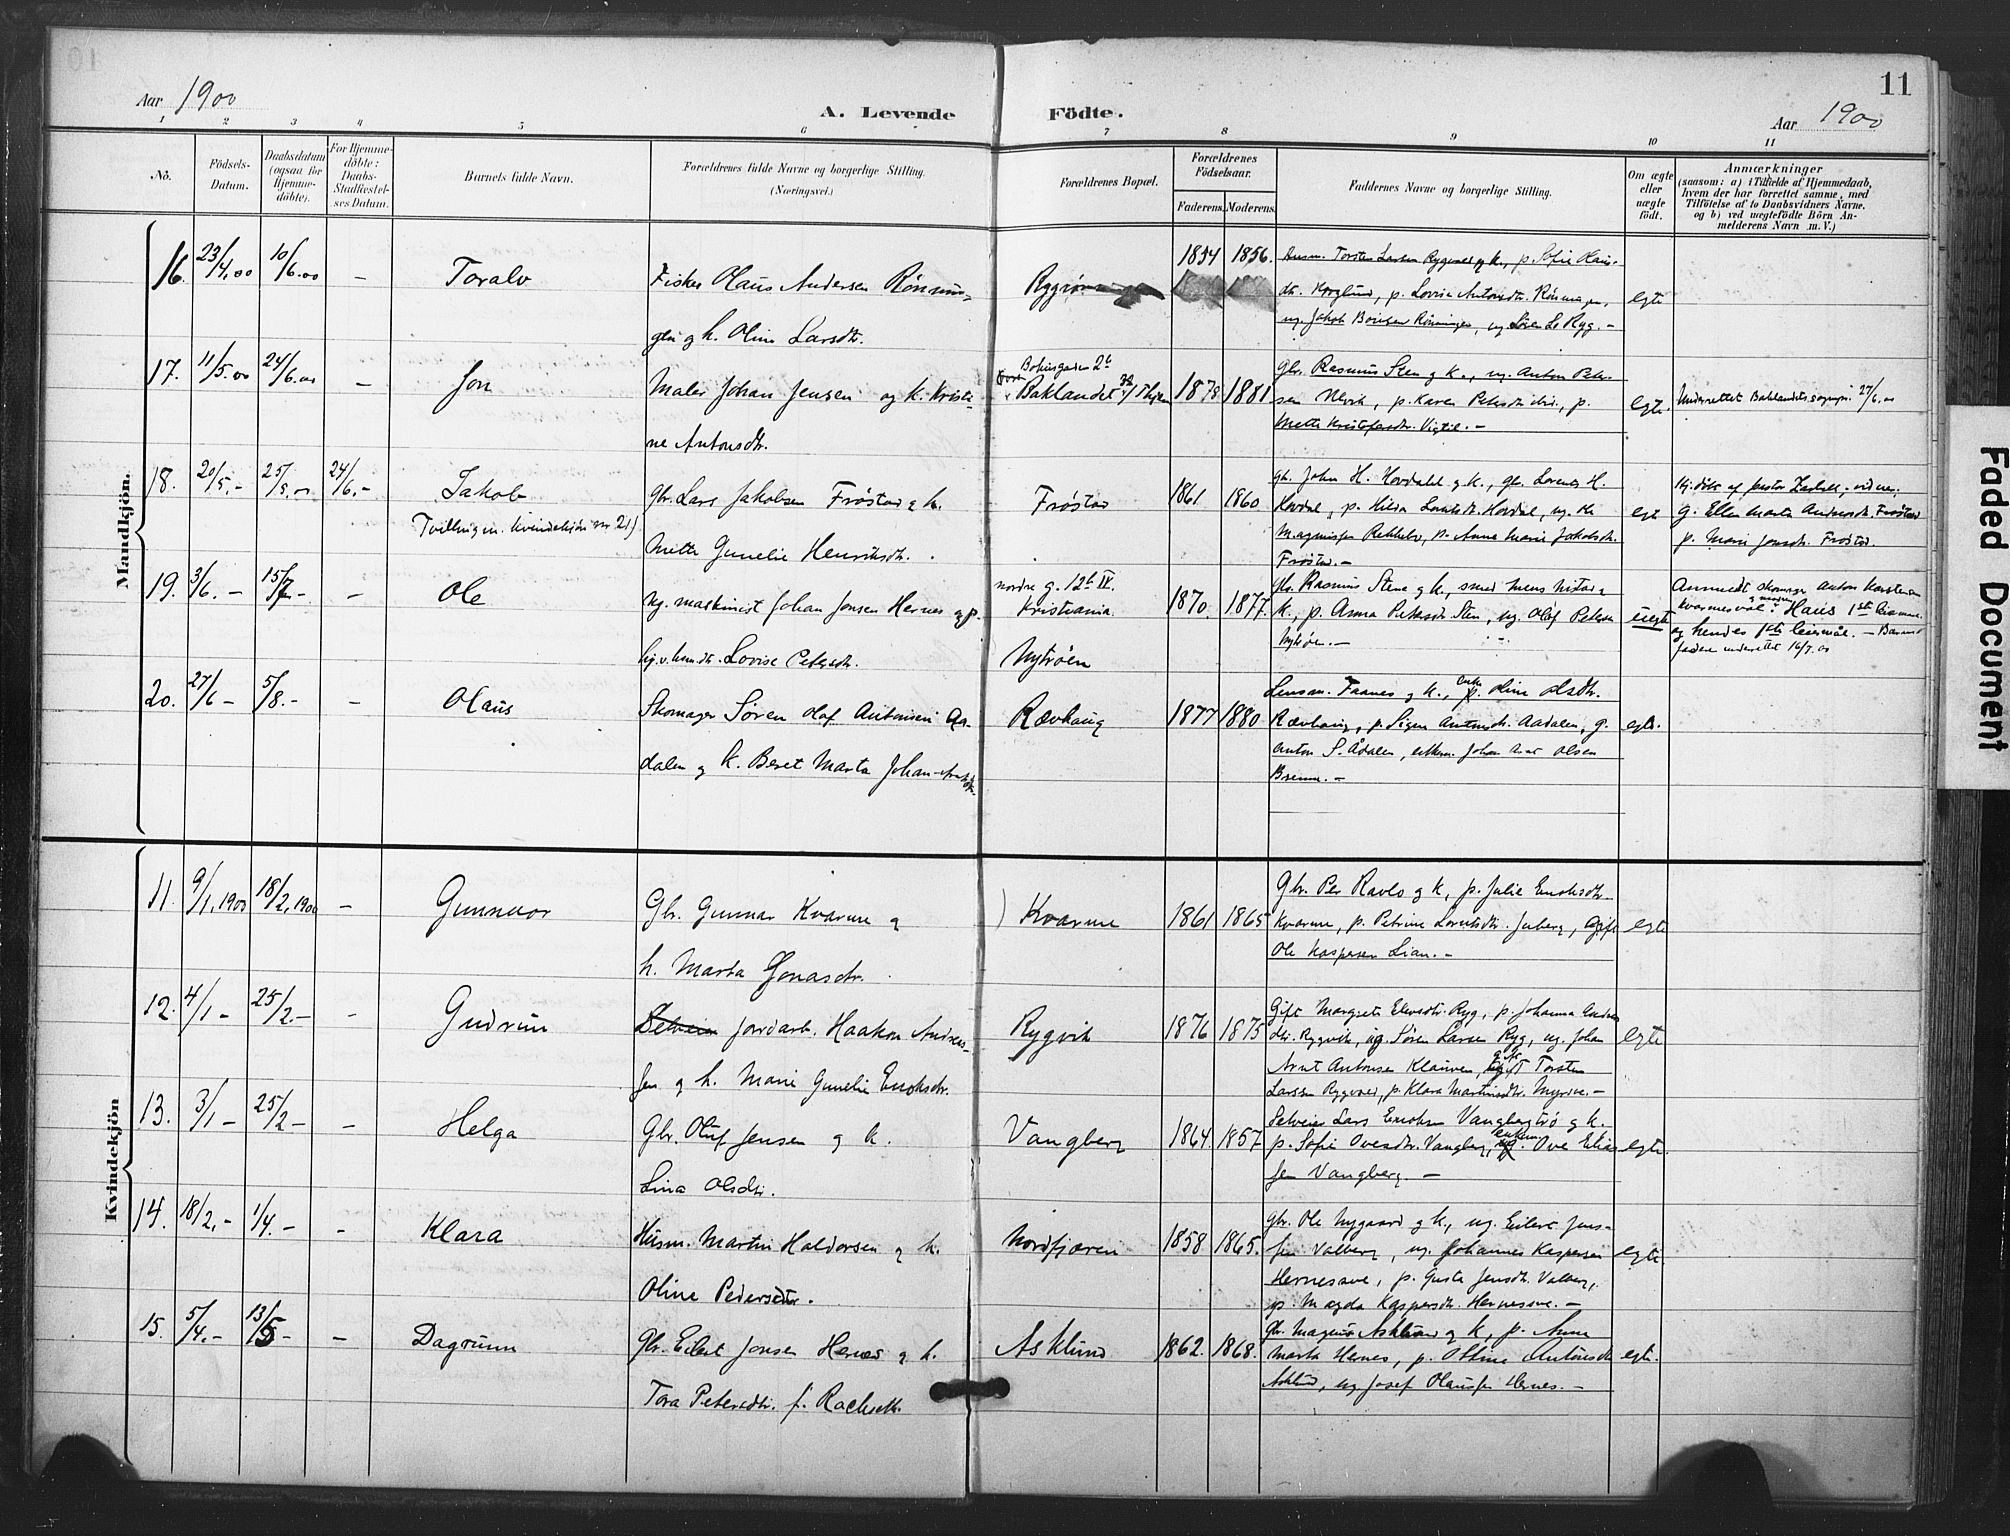 11
Aar 1900
A. Levende Födte.
Aar 1900
1 2 3 4 5 6 7 8 9 10 11
No.
Födsels-Datum.
Daabsdatum (ogsaa for Hjemmedöbte).
For Hjemmedöbte: Daabs-Stadfæstelses Datum.
Barnets fulde Navn.
Forældrenes fulde Navne og borgerlige Stilling. (Næringsvei.)
Forældrenes Bopæl.
Forældrenes Födselsaar.
Faderens. Moderens.
Faddernes Navne og borgerlige Stilling.
Om ægte eller uægte födt.
Anmærkninger (saasom: a) i Tilfælde af Hjemmedaab, hvem der har forrettet samme, med Tilföielse af to Daabsvidners Navne, og b) ved uægtefödte Börn Anmelderens Navn m. V.)
Mandkjön.
16. 23/4.00 10/6.00 - Toralv
Fisker Olaus Andersen Rönnin-
gen og h. Oline Larsdtr.
1854 1856.
Ansm. Torsten Larsen Rygvold og k., p. Sofie Olaus-
dtr. , p. Lovise Antonsdtr. Rönningen,
ug. Jakob Rönningen, ug. Sören L. Ryg. -
egte
17. 11/5.00 24/6.00 - Jon
Maler Johan Jensen og k. Kristi-
ne Antonsdtr.
Baklandet
1878 1881
Gbr. Rasmus Sten og k., ug. Anton Peter-
sen , p. Karen Petersdtr. , p.
Mette Kristofersdtr. Vigtil. -
egte.
Underrettet Baklandets sognepr. 27/6.00
18. 20/5.- 25/5.- 24/6.- Jakob
Tvilling m. Kvindekjön nr 21)
Gbr. Lars Jakobsen Fröstad og h.
Mette Gunelie Henriksdtr.
Fröstad
1861 1860
gb. John H. Hovdahl og k., gb. Lorents H.
Hovdal, p. Hilda Hovdal, ug.
, p. Anna Marie Jakobsdtr.
Fröstad. -
egte
Hj.döbt af pastor , vidner:
g. Ellen Marta Andersdtr. Fröstad
p. Marie Jonsdtr. Fröstad.
19. 3/6.- 15/7- - Ole
Ug. maskinist Johan Jonsen Hernes og p.
Lovise Petersdtr.
nordre g. 12b IV.
Kristiania
Nytröen
1870. 1877.
gbr. Rasmus Stene og k., smed
k., p. Anna Petersdtr. Sten, ug. Olaf Petersen
Nytröen. -
uegte
Anmeldt skomager Anton Karstensen
Haus 1ste leiermaal
og hendes 1ste leiermål. - Barnets
fader underrettet 16/7.00
20. 27/6- 5/8.- - Olaus
Skomager Sören Olaf Antonsen Aa-
dalen og k. Beret Marta Johan-Arntsdtr.
Rævhaug
1877 1880
Lensm. Faanes og k., enke Oline Olsdtr.
Rævhaug, p. Sigrid Antonsdtr. Aadalen, g.
Anton S. Ådalen, Johan Arnt Olsen
Brenne. -
egte.
Kvindekjön
11. 9/1.1900 18/2.1900 - Gunnvor
Gbr. Gunnar Kvarme og
h. Marta Jonasdtr.
Kvarme
1861 1865
Gbr. Per Ravlo og k, p. Julie Enoksdtr.
Kvarme, p. Petrine Lorntsdtr. Juberg, Gift
Ole Kaspersen Lian. -
egte
12. 4/1- 25/2.- - Gudrun
Selveier Jordarb. Haakon Andreas-
sen og h. Marie Gunelie Enoksdtr.
Rygvik
1876 1875
Gift Margrete Elevsdtr. Ryg, p. Johanna
dtr. Rygvik, ug. Sören Larsen Ryg, ug. Johan
Arnt Antonsen Klauven, gift Torsten
Larssen Rygvold, p. Klara Martinsdtr. Myrve. -
egte
13. 3/1- 25/2- - Helga
Gbr. Oluf Jensen og k.
Lina Olsdtr.
Vangberg
1864. 1857
Selveier Lars Enoksen Vangbergtrö og k.
p. Sofie Ovesdtr. Vangberg, enkem. Ove Elias-
sen Vangberg. -
egte.
14. 18/2.- 1/4.- - Klara
Husm. Martin Haldorsen og h.
Oline Pedersdtr.
Nordfjæren
1858 1865.
gbr. Ole Nygaard og k., ug. Eilert Jens-
sen Valberg, ug. Johannes Kaspersen
Hernesove, p. Gusta Jensdtr. Valberg,
p. Magda Kaspersdtr. Hernesove. -
egte.
15. 5/4.- 13/5- - Dagrunn
Gbr. Eilert Jonsen Hernes og h.
Tora Petersdtr. f.
Asklund
1862. 1868.
Gbr. Magnus Asklund og k, p. Anna
Marta Hernes, p. Ottine Antonsdtr
Asklund, ug. Josef Olaussen Hernes. -
egte.
Faded Document